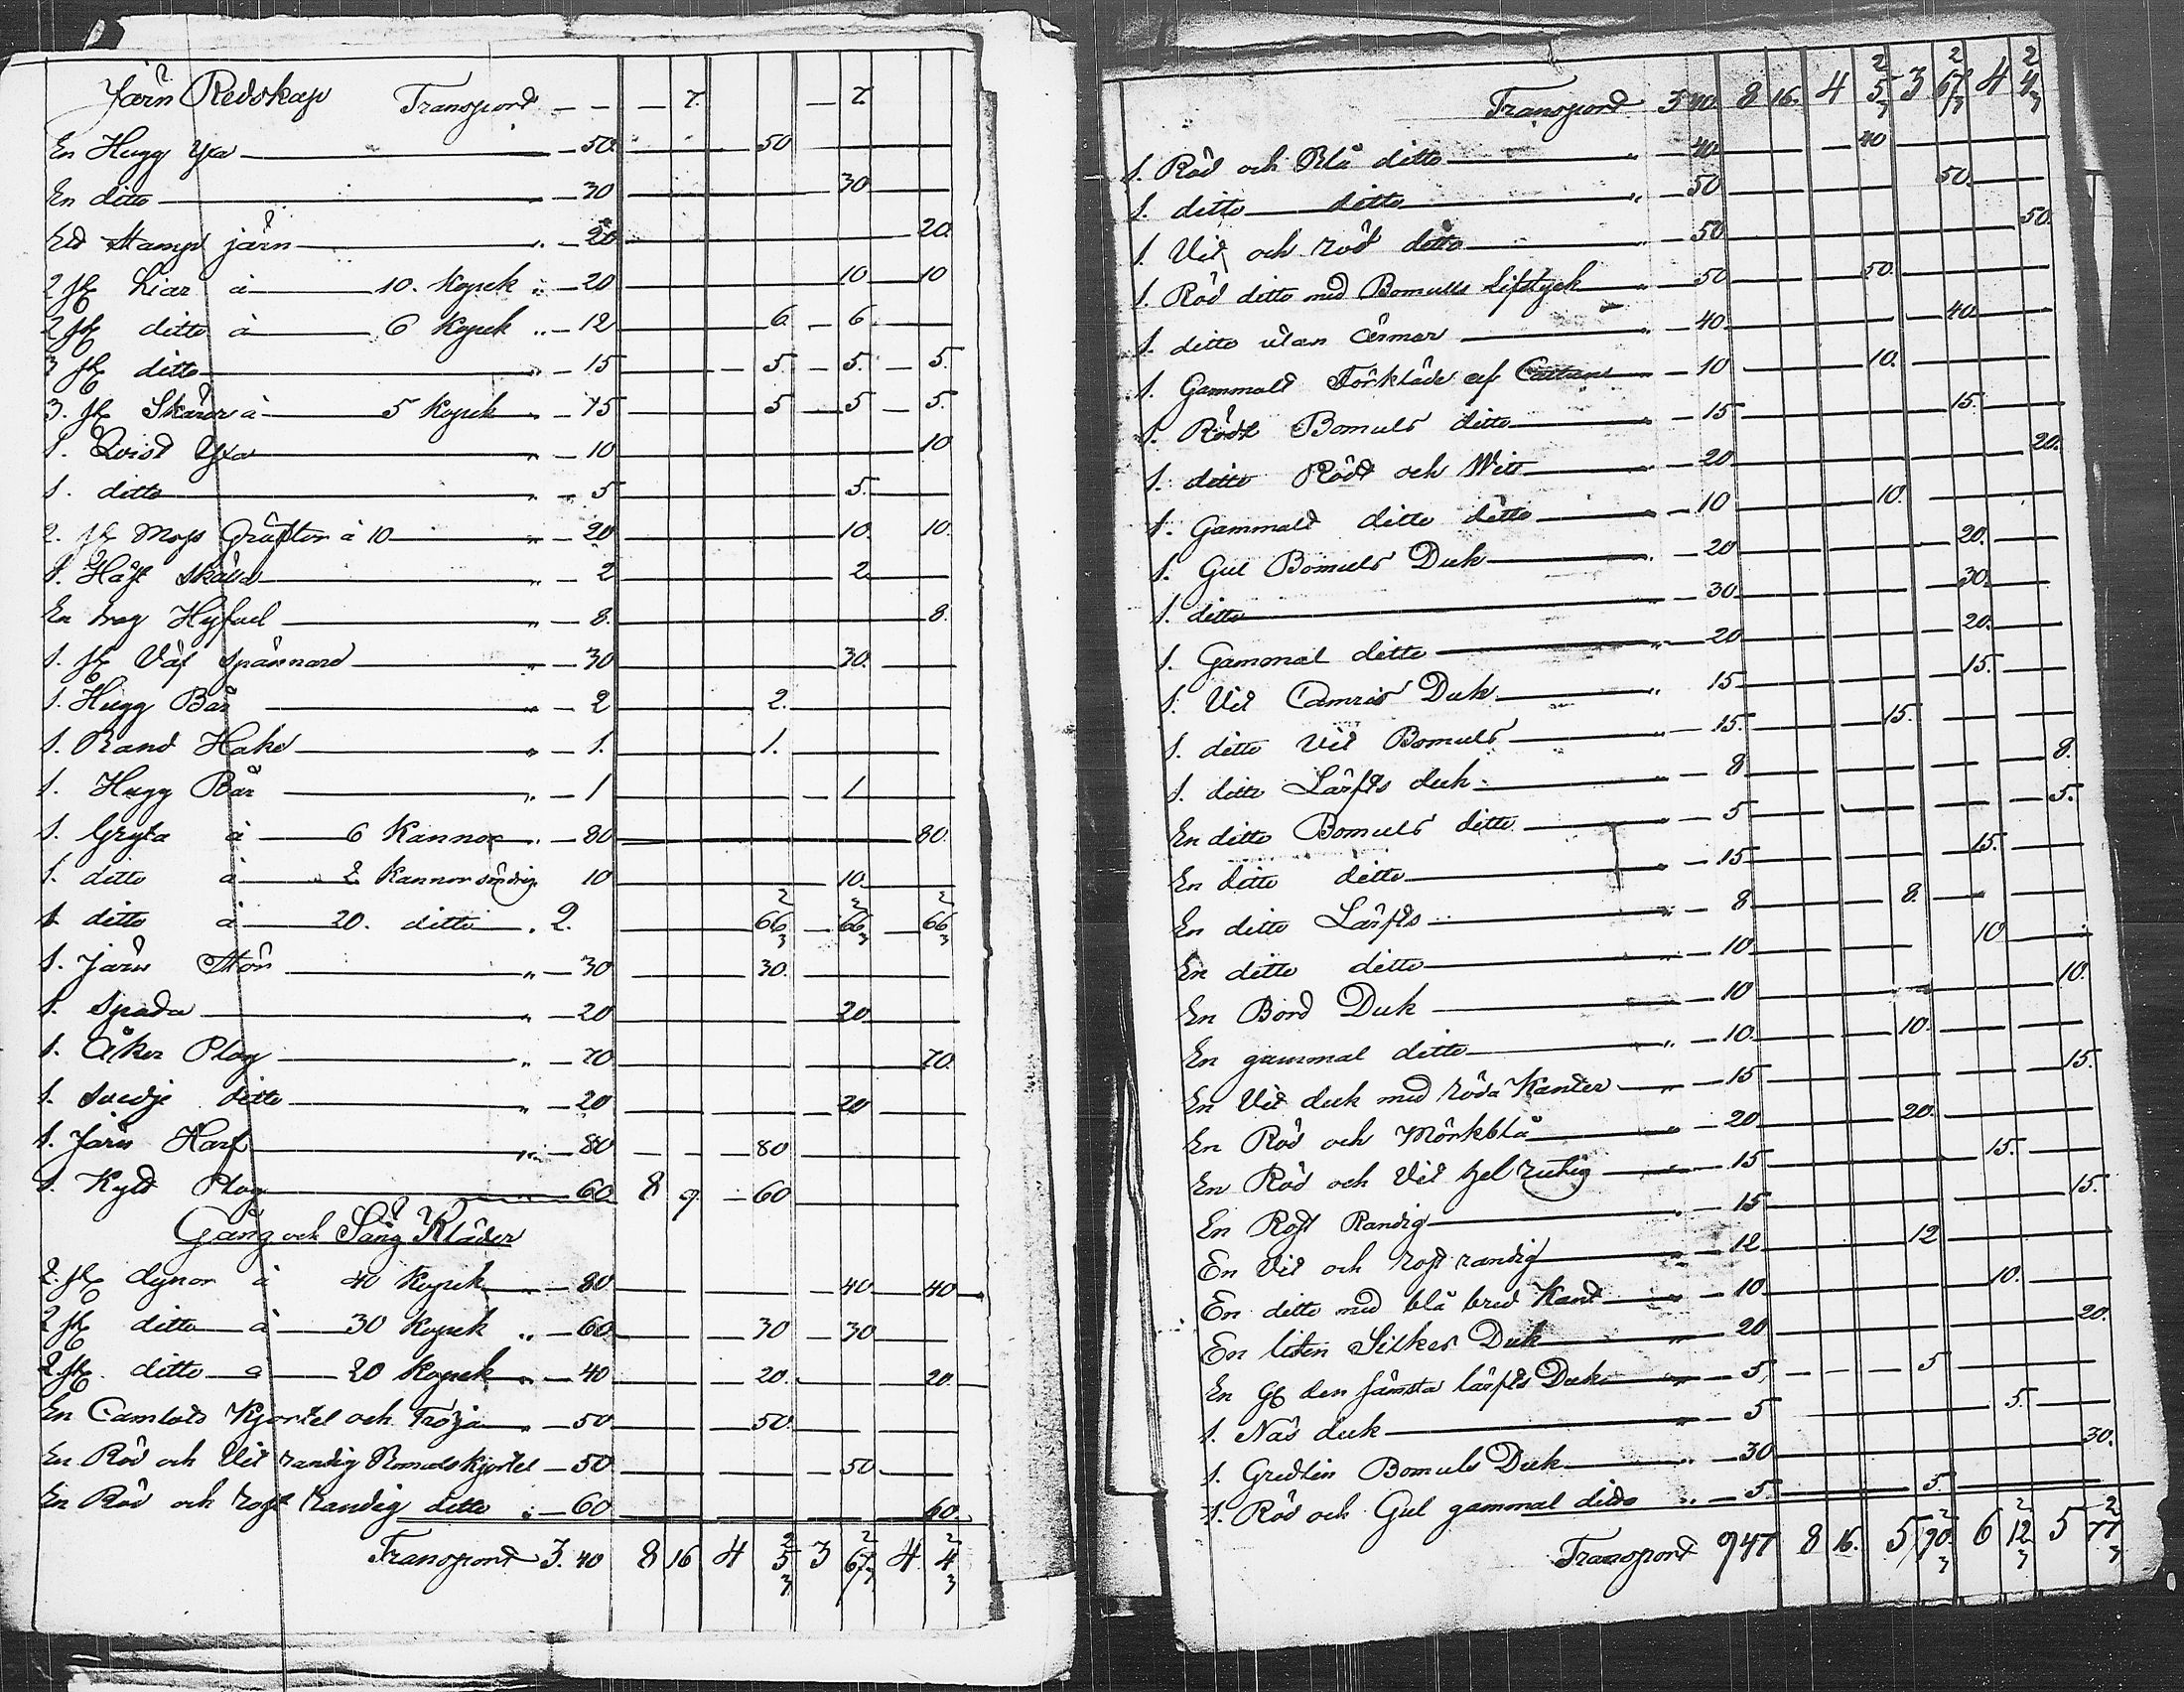 Järn Redskap Transpord — — — 7. — 7.
En Hugg Yxa — 50. 50
En ditto — 30 30
Ett Stamp järn — 20 20.
2 st Liar à 10. Kopek — 20 10 10
2 st ditto à 6 Kopek — 12 6 — 6
3 st ditto — 15 5 — 5. — 5.
3. st Skäror à 5 Kopek — 15 5 — 5 — 5.
1. Qvist Yxa — 10 10
1. ditto — 5 5.
2. st Moss Gräftor à 10 — 20 10. 10.
1. — 2 2
En — 8. 8.
1. st Väf spännare — 30 30.
1. Hugg Bår — 2 2.
1. Rand Hake — 1. 1.
1. Hugg Bår — 1 1
1. Gryta à 6 Kannor — 80 80.
1. ditto à 2 Kannor söndrig 10 10.
1 ditto à 20. ditto . 2. 66 2/3 — 66 2/3 — 66 2/3
1. Järn Stör — 30 30.
1. Spada — 20 20
1. Åker Plog — 70 70.
1. Svedje ditto — 20 20
1. Järn Harf — 80 80
1. Kyld Plog — 60 8 9. — 60
Gång och Säng Kläder
2. st dynor à 40 Kopek — 80 — 40 — 40
2 st ditto à 30 Kopek — 60. 30 — 30
2. st ditto à 20 Kopek — 40 20. 20.
En Camlots Kjortel och Tröja — 50 50.
En Röd och Vit randig Bomulskjortel — 50 — 50
En Röd och rost Randig ditto — 60 60.
Transpord 3. 40 8 16 4 5 2/3 3 67 2/3 4 4 2/3
Transpord 3 40. 8 16. 4 5 2/3 3 67 2/3 4 4 2/3
1. Röd och Blå ditto — 40 40
1. ditto ditto — 50 50.
1. Vit och röd ditto — 50 50.
1. Röd ditto med Bomulls Lifstyck — 50 50.
1. ditto utan Ermar — 40 40
1. Gammalt Förkläde af Cattun — 10 10.
1. Rödt Bomuls ditto — 15 15.
1. ditto Rödt och Witt — 20 20.
1. Gammalt ditto ditto — 10 10.
1. Gul Bomuls Duk — 20 20.
1. ditto — 30 30.
1. Gammal ditto — 20 20.
1. Vit Camris Duk — 15 15.
1. ditto Vit Bomuls — 15. 15.
1. ditto Lärfts duk — 8 8.
En ditto Bomuls ditto — 5 5.
En ditto ditto — 15 15.
En ditto Lärfts — 8 8.
En ditto ditto — 10 10
En Bord Duk — 10 10.
En gammal ditto — 10. 10.
En Vit duk med röda Kanter — 15 15.
En Röd och Mörkblå — 20 20.
En Röd och Vit hel rutig — 15 15.
En Rost Randig — 15 15.
En Vit och rost randig — 12 12
En ditto med blå bred Kant — 10 10.
En liten Silkes Duk — 20 20.
En lärfts Duk — 5 5
1. Näs duk — 5 5.
1. Gredlin Bomuls Duk — 30 30.
1. Röd och Gul gammal ditto — 5 5.
Transpord 9 47 8 16. 5 90 2/3 6 12 2/3 5 77 2/3